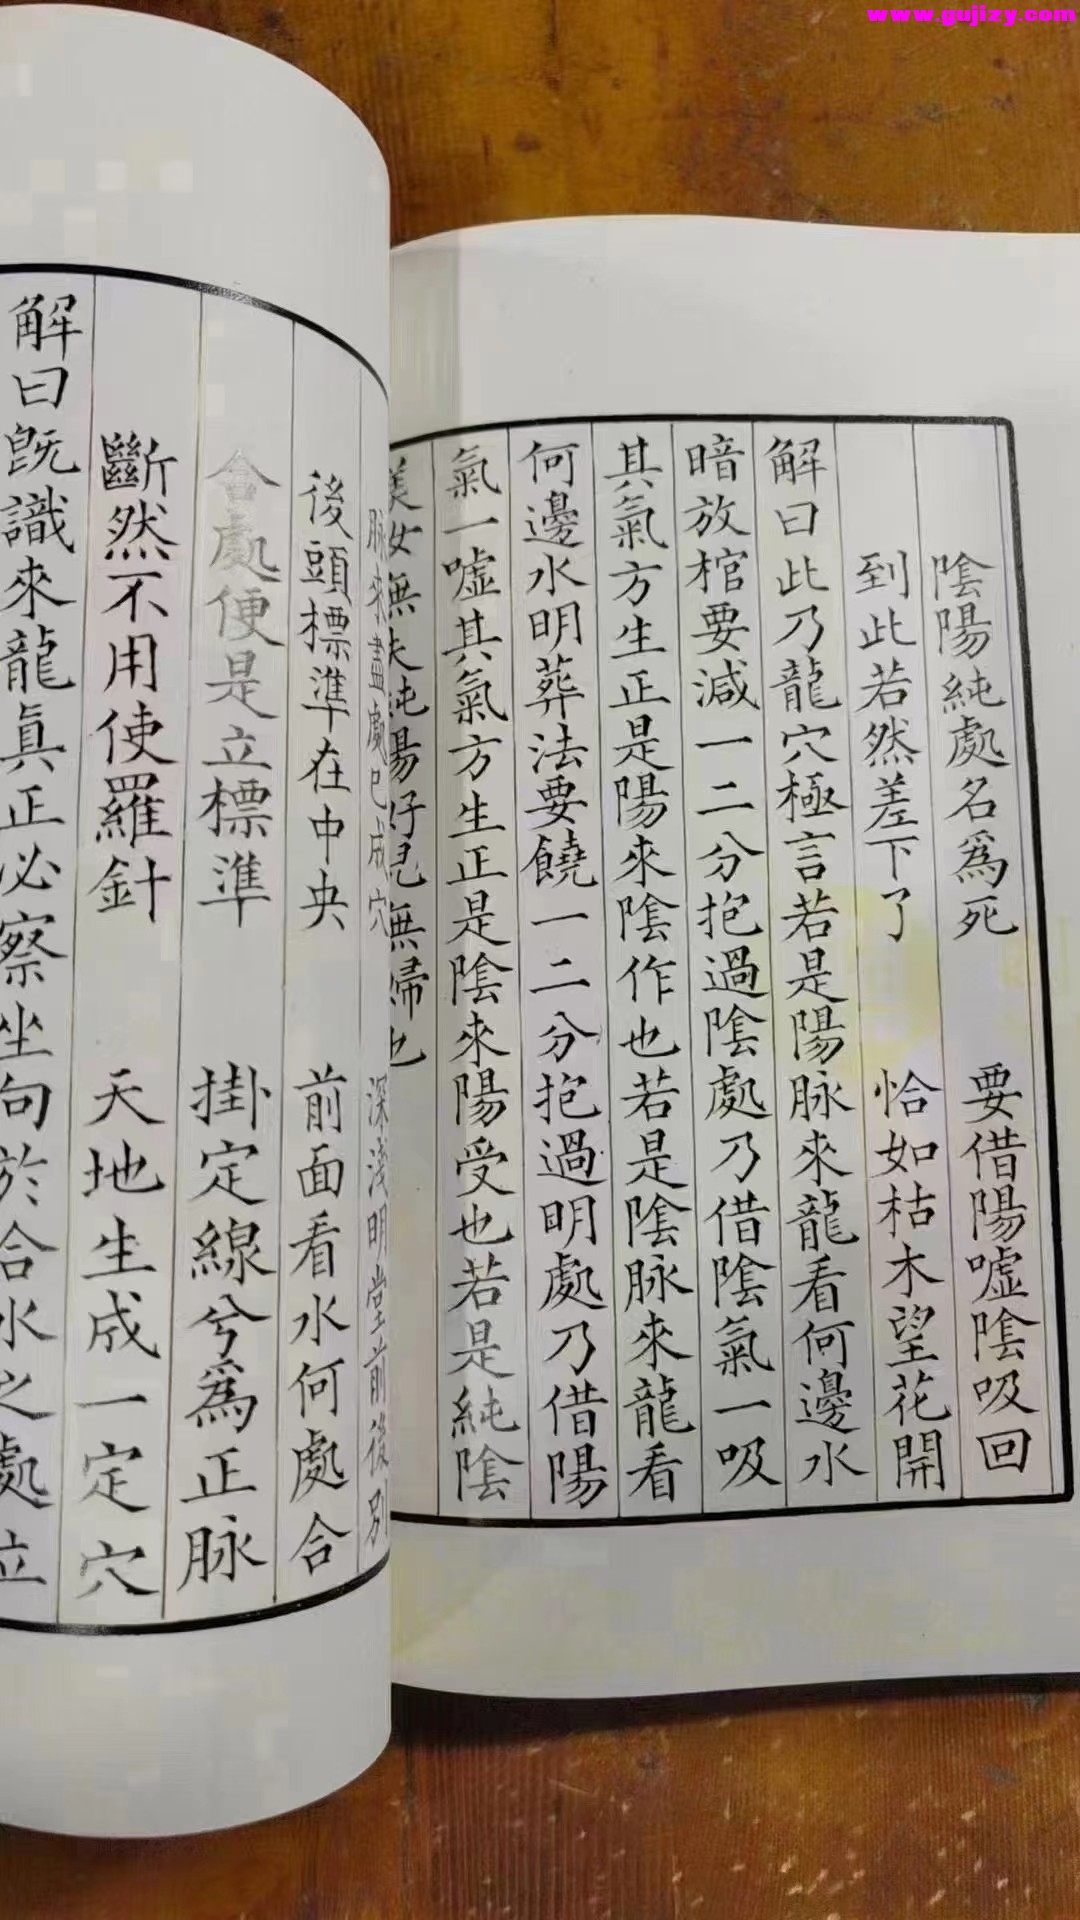 www.gujizy.com
陰陽純處名為死　要借陽噓陰吸回
到此若然差下了　恰如枯木望花開
解曰此乃龍穴極言若是陽脉來龍看何邊水
暗放棺要減一二分抱過陰處乃借陰氣一吸
其氣方生正是陽來陰作也若是陰脉來龍看
何邊水明葬法要饒一二分抱過明處乃借陽
氣一噓其氣方生正是陰來陽受也若是純陰
美女無夫純陽好兒無婦也
脉來盡處已成穴　深淺明堂前後別
後頭標準在中央　前面看水何處合
合處便是立標準　掛定線兮為正脉
斷然不用使羅針　天地生成一定穴
解曰既識來龍真正必察坐向於合水之處立